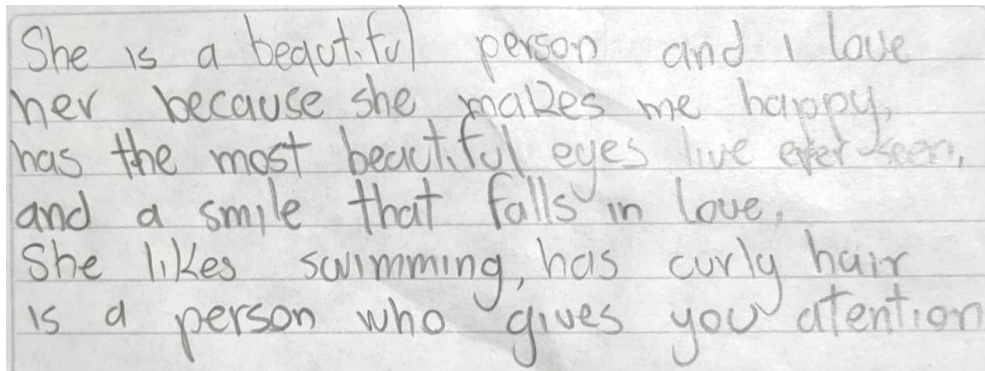 She is a beautiful person and i love
her because she makes me happy,
has the most beautiful eyes live ever seen,
and a smile that falls in love,
She likes swimming, has curly hair
is a person who gives you atention